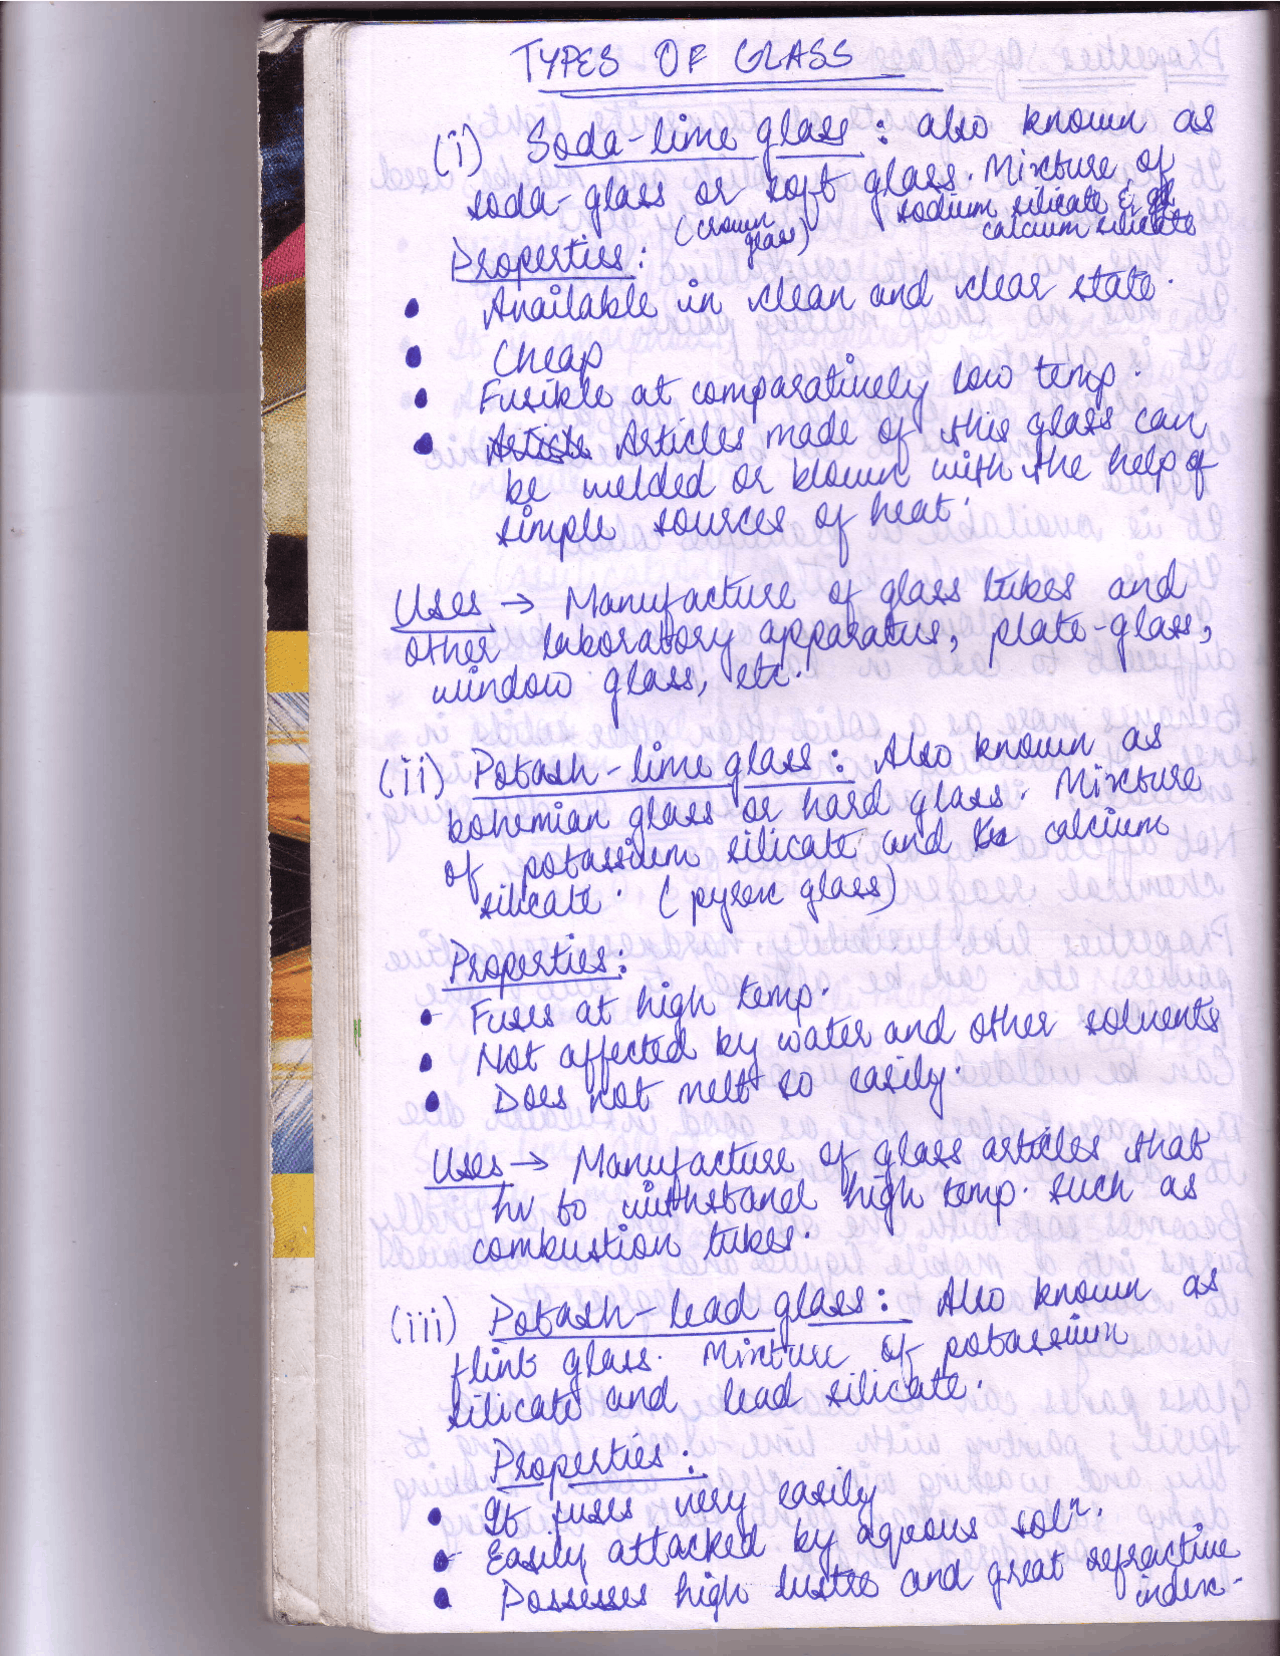 TYPES OF GLASS
(i) Soda-lime glass : also known as
soda-glass or soft glass. Mixture of
(crown glass) sodium silicate &
calcium silicate
Properties :
• Available in clean and clear state.
• Cheap
• Fusible at comparatively low temp.
• Articles made of this glass can
be welded or blown with the help of
simple sources of heat.
Uses → Manufacture of glass tubes and
other laboratory apparatus, plate-glass,
window glass, etc.
(ii) Potash-lime glass : Also known as
bohemian glass or hard glass. Mixture
of potassium silicate and calcium
silicate. (pyrex glass)
Properties :
• Fuses at high temp.
• Not affected by water and other solvents
• Does not melt so easily.
Uses → Manufacture of glass articles that
hv to withstand high temp. such as
combustion tubes.
(iii) Potash-lead glass : Also known as
flint glass. Mixture of potassium
silicate and lead silicate.
Properties :
• It fuses very easily
• Easily attacked by aqeous solⁿ.
• Possesses high lustre and great refractive
index.